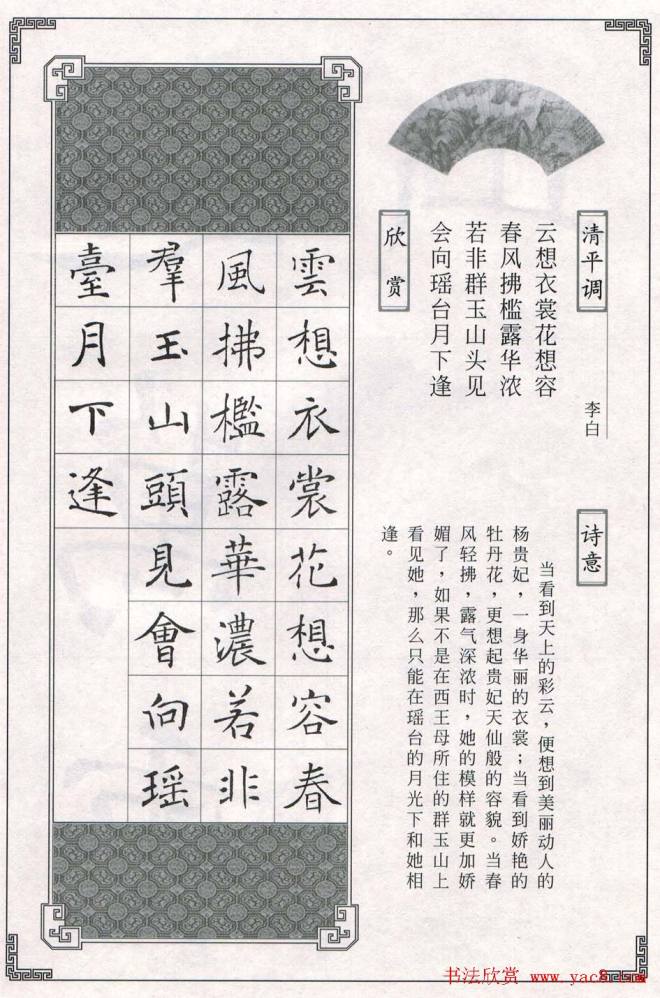 清平调
李白
云想衣裳花想容
春风拂槛露华浓
若非群玉山头见
会向瑶台月下逢
诗意
当看到天上的彩云，便想到美丽动人的
杨贵妃，一身华丽的衣裳；当看到娇艳的
牡丹花，更想起贵妃天仙般的容貌。当春
风轻拂，露气深浓时，她的模样就更加娇
媚了，如果不是在西王母所住的群玉山上
看见她，那么只能在瑶台的月光下和她相
逢。
欣赏
雲想衣裳花想容春
風拂檻露華濃若非
羣玉山頭見會向瑶
臺月下逢
书法欣赏 www.yac8.com